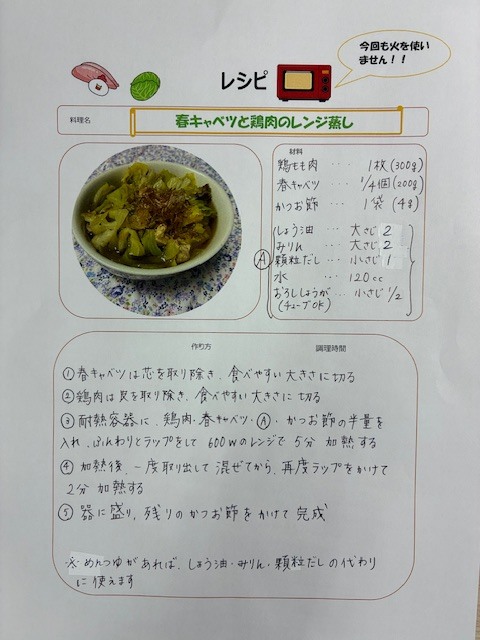 今回も火を使い
ません！！
レシピ
料理名
春キャベツと鶏肉のレンジ蒸し
材料
鶏もも肉 ・・・ 1枚(300g)
春キャベツ ・・・ 1/4個(200g)
かつお節 ・・・ 1袋(4g)
Ⓐ
しょう油 ・・・ 大さじ2
みりん ・・・ 大さじ2
顆粒だし ・・・ 小さじ1
水 ・・・ 120cc
おろししょうが ・・・ 小さじ1/2
(チューブOK)
作り方 調理時間
①春キャベツは芯を取り除き、食べやすい大きさに切る
②鶏肉は皮を取り除き、食べやすい大きさに切る
③耐熱容器に、鶏肉・春キャベツ・Ⓐ・かつお節の半量を
入れ、ふんわりとラップをして600Wのレンジで5分 加熱する
④加熱後、一度取り出して混ぜてから、再度ラップをかけて
2分 加熱する
⑤器に盛り、残りのかつお節をかけて完成
※めんつゆがあれば、しょう油・みりん・顆粒だしの代わり
に使えます